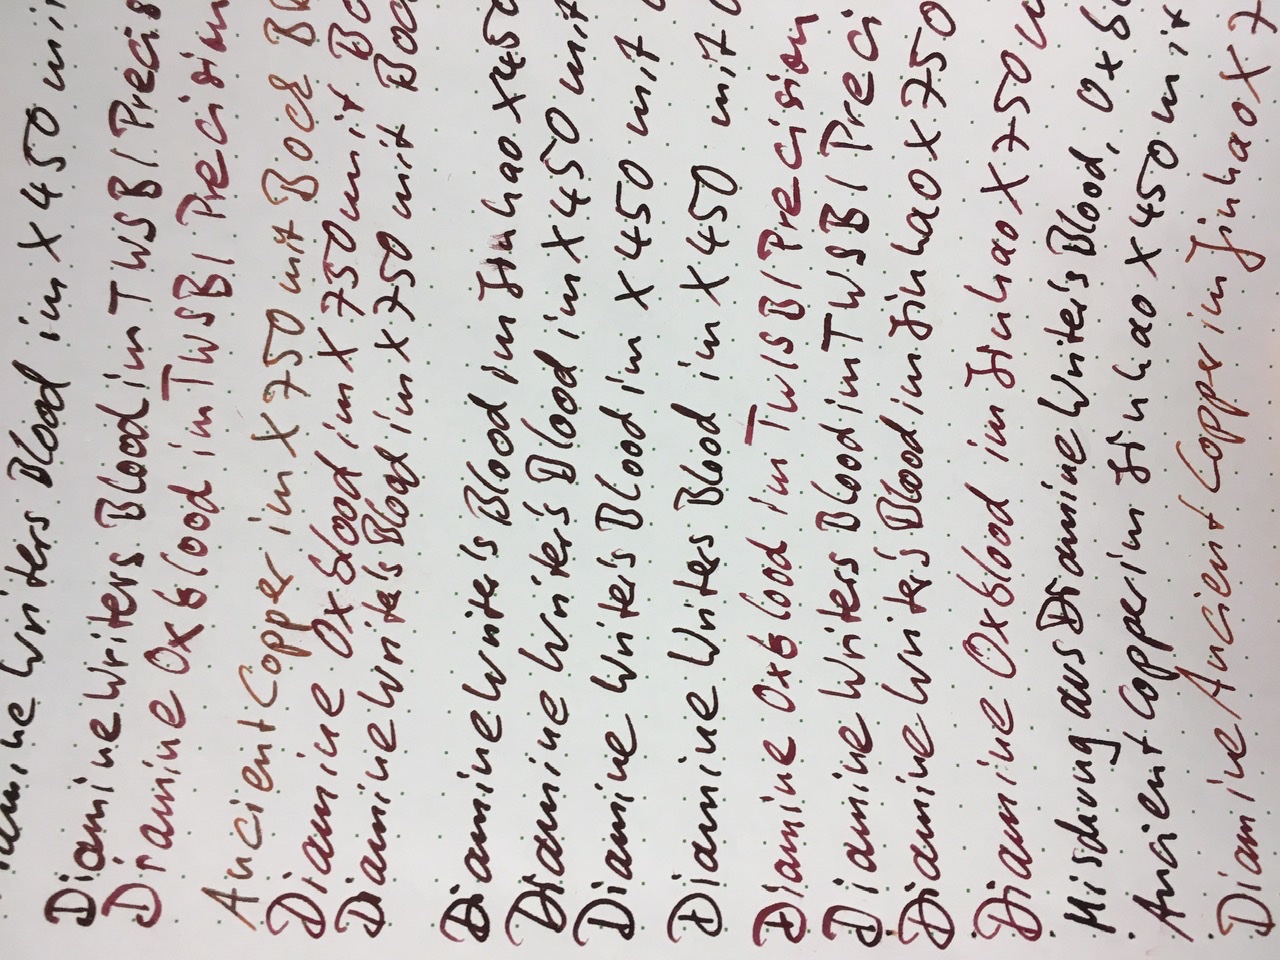 Writers Blood im X450 mit
Diamine Writers Blood im TWSBI Precis
Diamine Oxblood im TWSBI Precision
Ancient Copper im X750 mit Bock
Diamine Oxblood im X750 mit
Diamine Writer's Blood im X750 mit
Diamine Writer's Blood im Jinhao X450
Diamine Writer's Blood im X450 mit
Diamine Writer's Blood im X450 mit
Diamine Writers Blood im X450 mit
Diamine Oxblood im TWSBI Precision
Diamine Writers Blood im TWSBI Preci
Diamine Writer's Blood im Jinhao X750
Diamine Oxblood im Jinhao X750
Mischung aus Diamine Writer's Blood, Oxb
Ancient Copper im Jinhao X450 mit
Diamine Ancient Copper im Jinhao X7